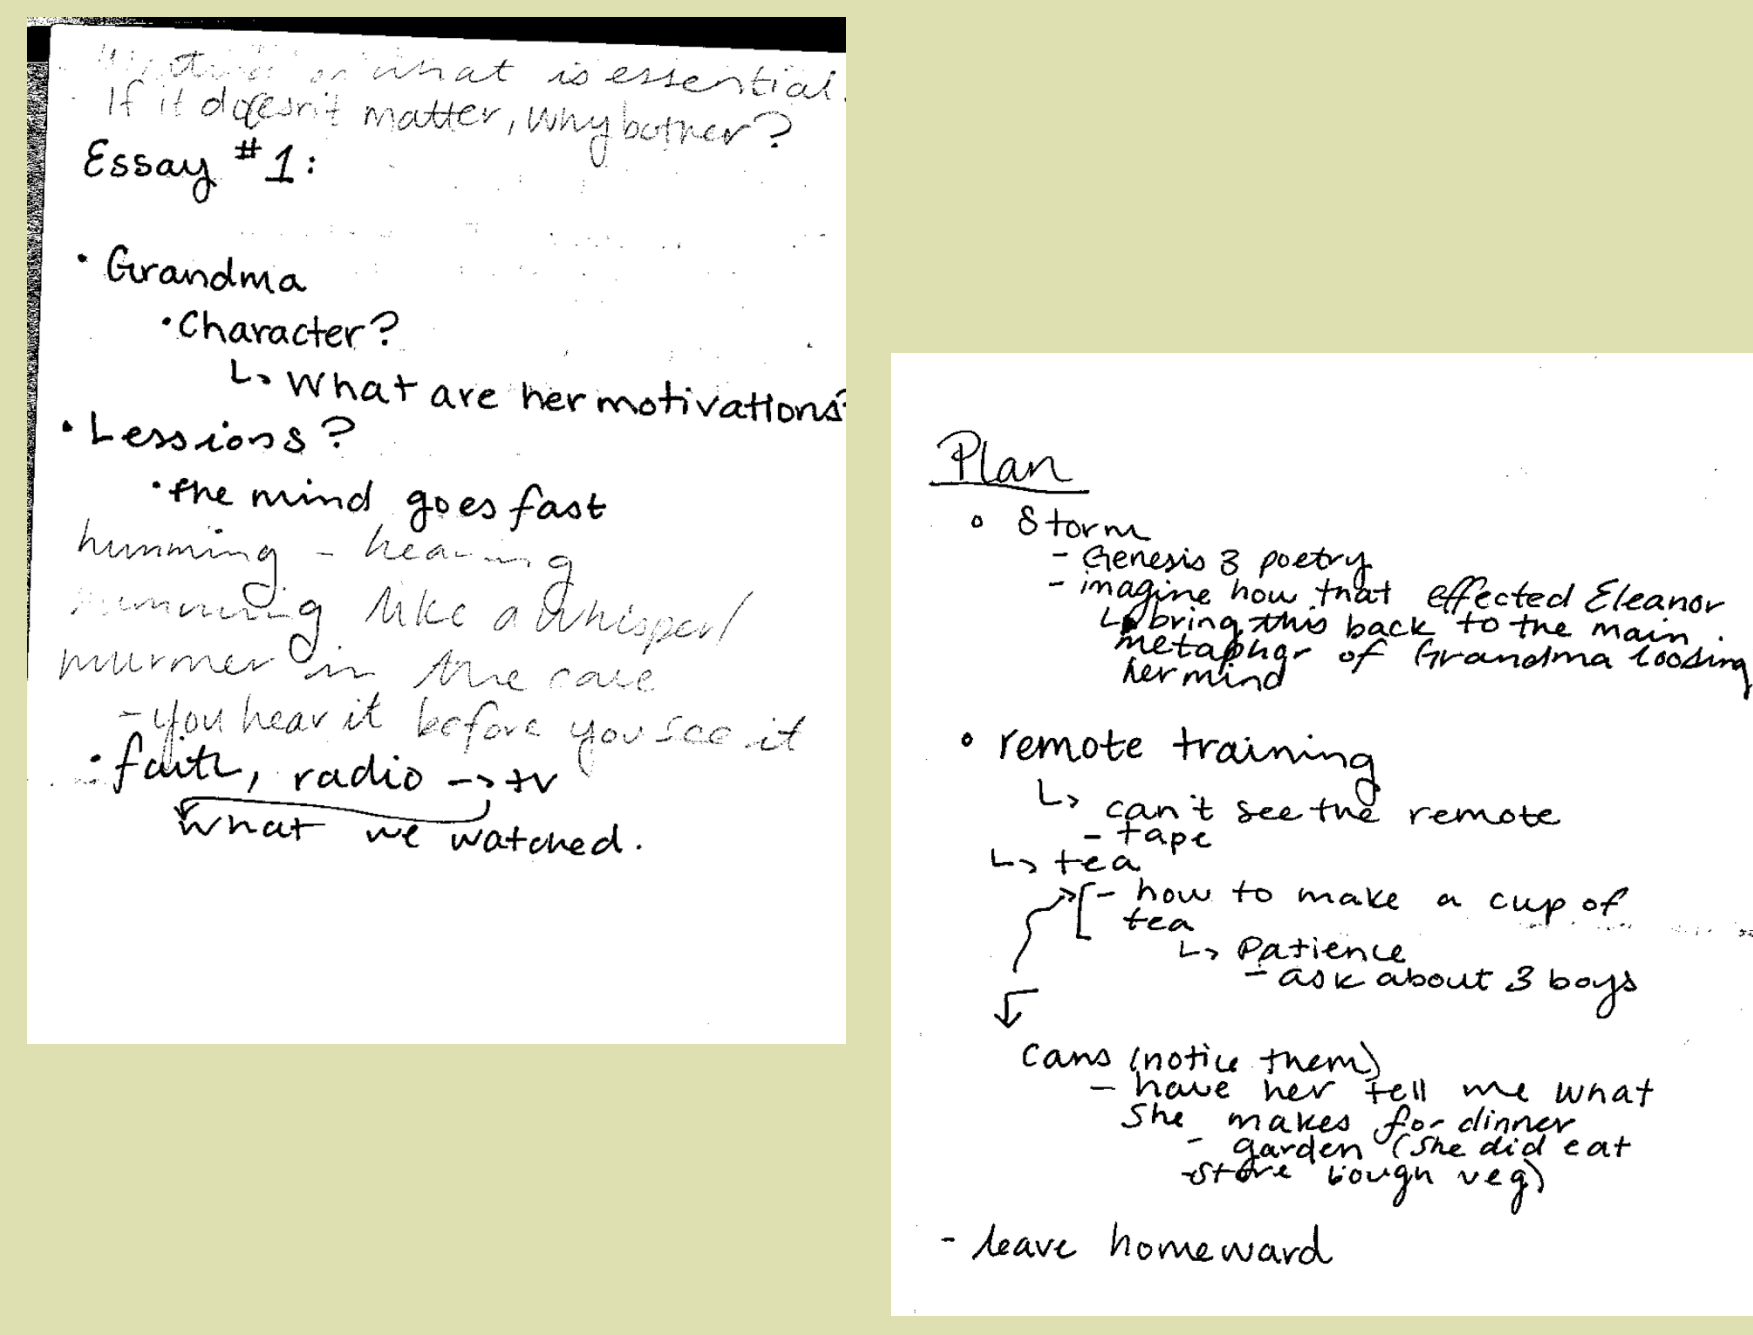 what is essential.
If it doesn't matter, why bother?
Essay #1:
• Grandma
• Character?
↳ What are her motivations?
• Lessions?
• the mind goes fast
humming - hearing
humming like a whisper/
murmer in the
- you hear it before you see it
• faith, radio → tv
what we watched.
Plan
◦ Storm
- Genesis 3 poetry
- imagine how that effected Eleanor
↳ bring this back to the main
metaphor of Grandma loosing
her mind
◦ remote training
↳ can't see the remote
- tape
↳ tea
- how to make a cup of
tea
↳ Patience
- ask about 3 boys
cans (notice them)
- have her tell me what
she makes for dinner
- garden (she did eat
store bough veg)
- leave homeward